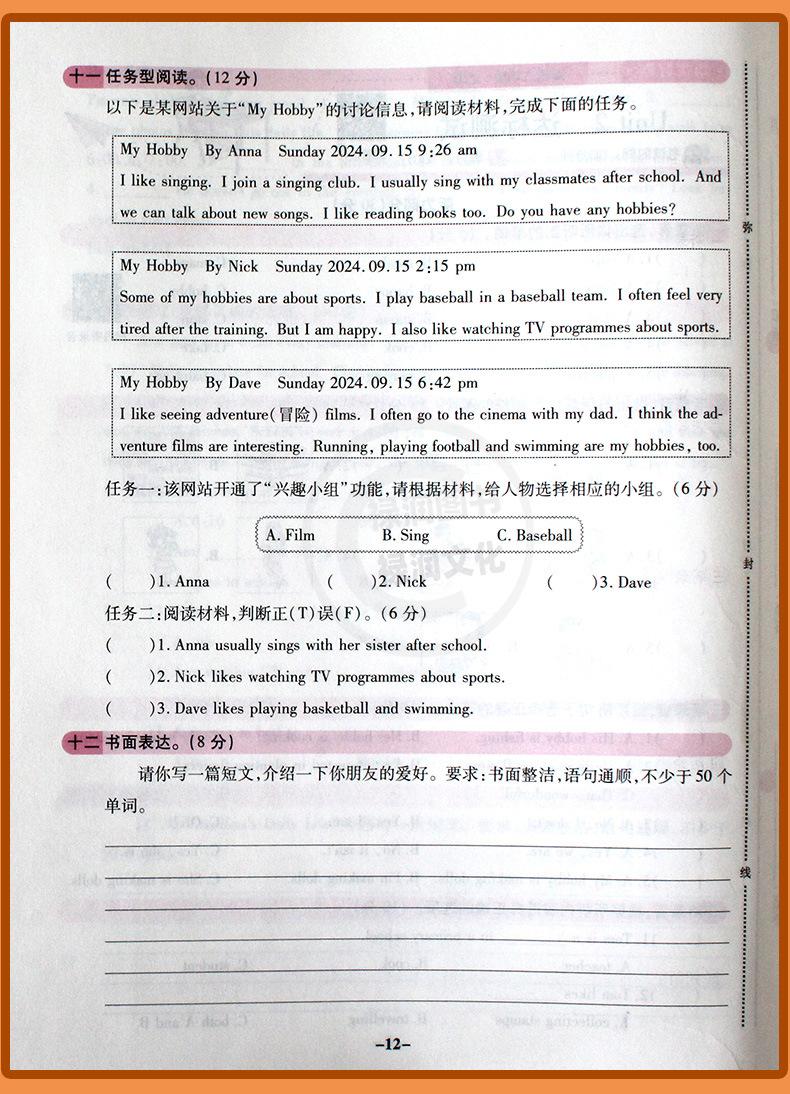 十一 任务型阅读。(12 分)
以下是某网站关于“My Hobby”的讨论信息,请阅读材料,完成下面的任务。
My Hobby By Anna Sunday 2024.09.15 9:26 am
I like singing. I join a singing club. I usually sing with my classmates after school. And
we can talk about new songs. I like reading books too. Do you have any hobbies?
My Hobby By Nick Sunday 2024.09.15 2:15 pm
Some of my hobbies are about sports. I play baseball in a baseball team. I often feel very
tired after the training. But I am happy. I also like watching TV programmes about sports.
My Hobby By Dave Sunday 2024.09.15 6:42 pm
I like seeing adventure(冒险) films. I often go to the cinema with my dad. I think the ad-
venture films are interesting. Running, playing football and swimming are my hobbies, too.
任务一:该网站开通了“兴趣小组”功能,请根据材料,给人物选择相应的小组。(6 分)
A. Film B. Sing C. Baseball
( )1. Anna ( )2. Nick ( )3. Dave
任务二:阅读材料,判断正(T)误(F)。(6 分)
( )1. Anna usually sings with her sister after school.
( )2. Nick likes watching TV programmes about sports.
( )3. Dave likes playing basketball and swimming.
十二 书面表达。(8 分)
请你写一篇短文,介绍一下你朋友的爱好。要求:书面整洁,语句通顺,不少于 50 个
单词。
-12-
弥
封
线
绿润图书
绿润文化